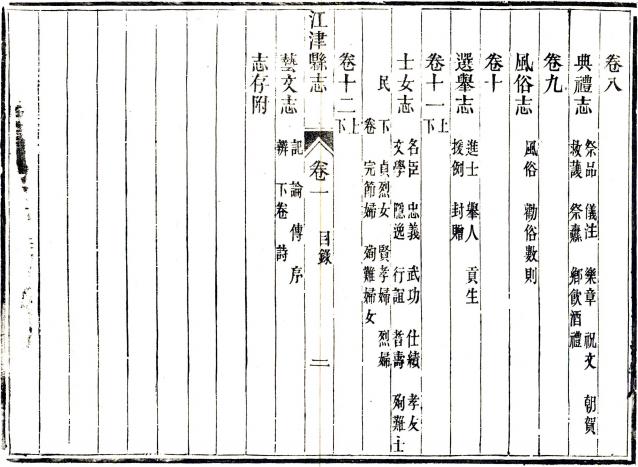 卷八
典禮志
祭品 儀注 樂章 祝文 朝賀
救護 祭纛 鄉飲酒禮
卷九
風俗志
風俗 勸俗數則
卷十
選舉志
進士 舉人 貢生
援例 封贈
卷十一上下
士女志
名臣 忠義 武功 仕績 孝友
文學 隱逸 行誼 耆壽 殉難士
民 下 貞烈女 賢孝婦 烈婦
卷 完節婦 殉難婦女
卷十二上下
江津縣志 卷一 目錄 二
藝文志
記 論 傳 序
辨 下卷 詩
志存附